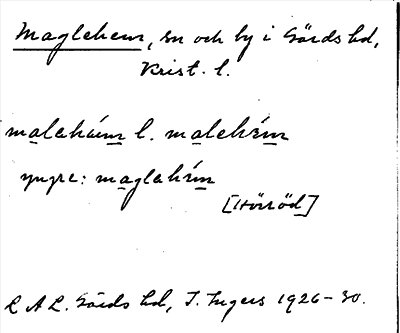 Maglehem, sn och by i Gärds hd,
Krist. l.
malehäím l. malehẹ́m
yngre: maglahẹ́m
[Hörröd]
L A L. Gärds hd, I. Ingers 1926-30.